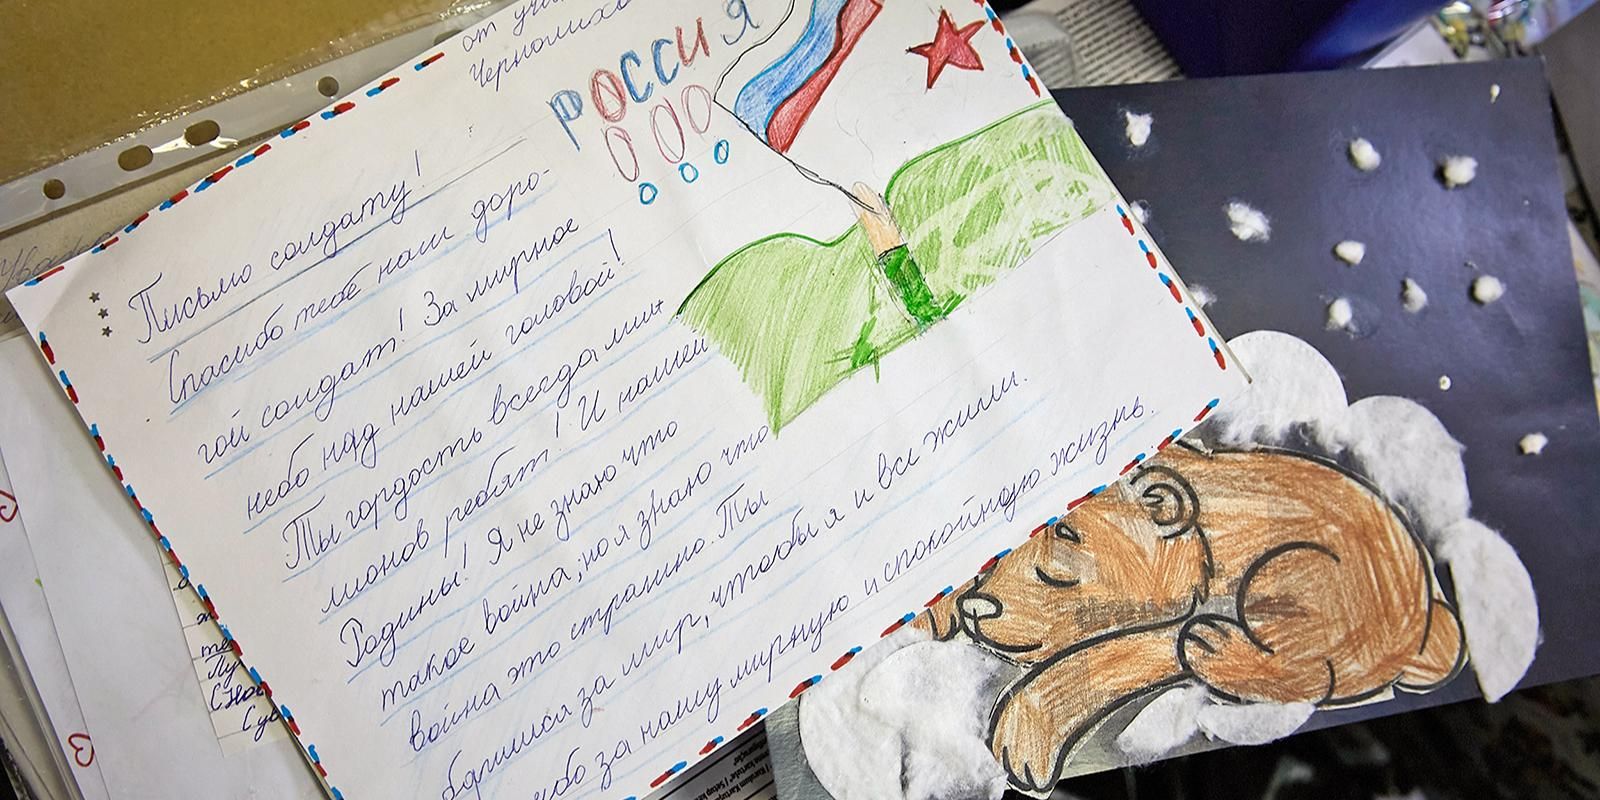 от
РОССИЯ
Письмо солдату!
Спасибо тебе наш доро-
гой солдат! За мирное
небо над нашей головой!
Ты гордость всегда мил-
лионов ребят! И нашей
Родины! Я не знаю что
такое война, но я знаю что
война это страшно. Ты
за мир, чтобы я и все жили.
за нашу мирную и спокойную жизнь.